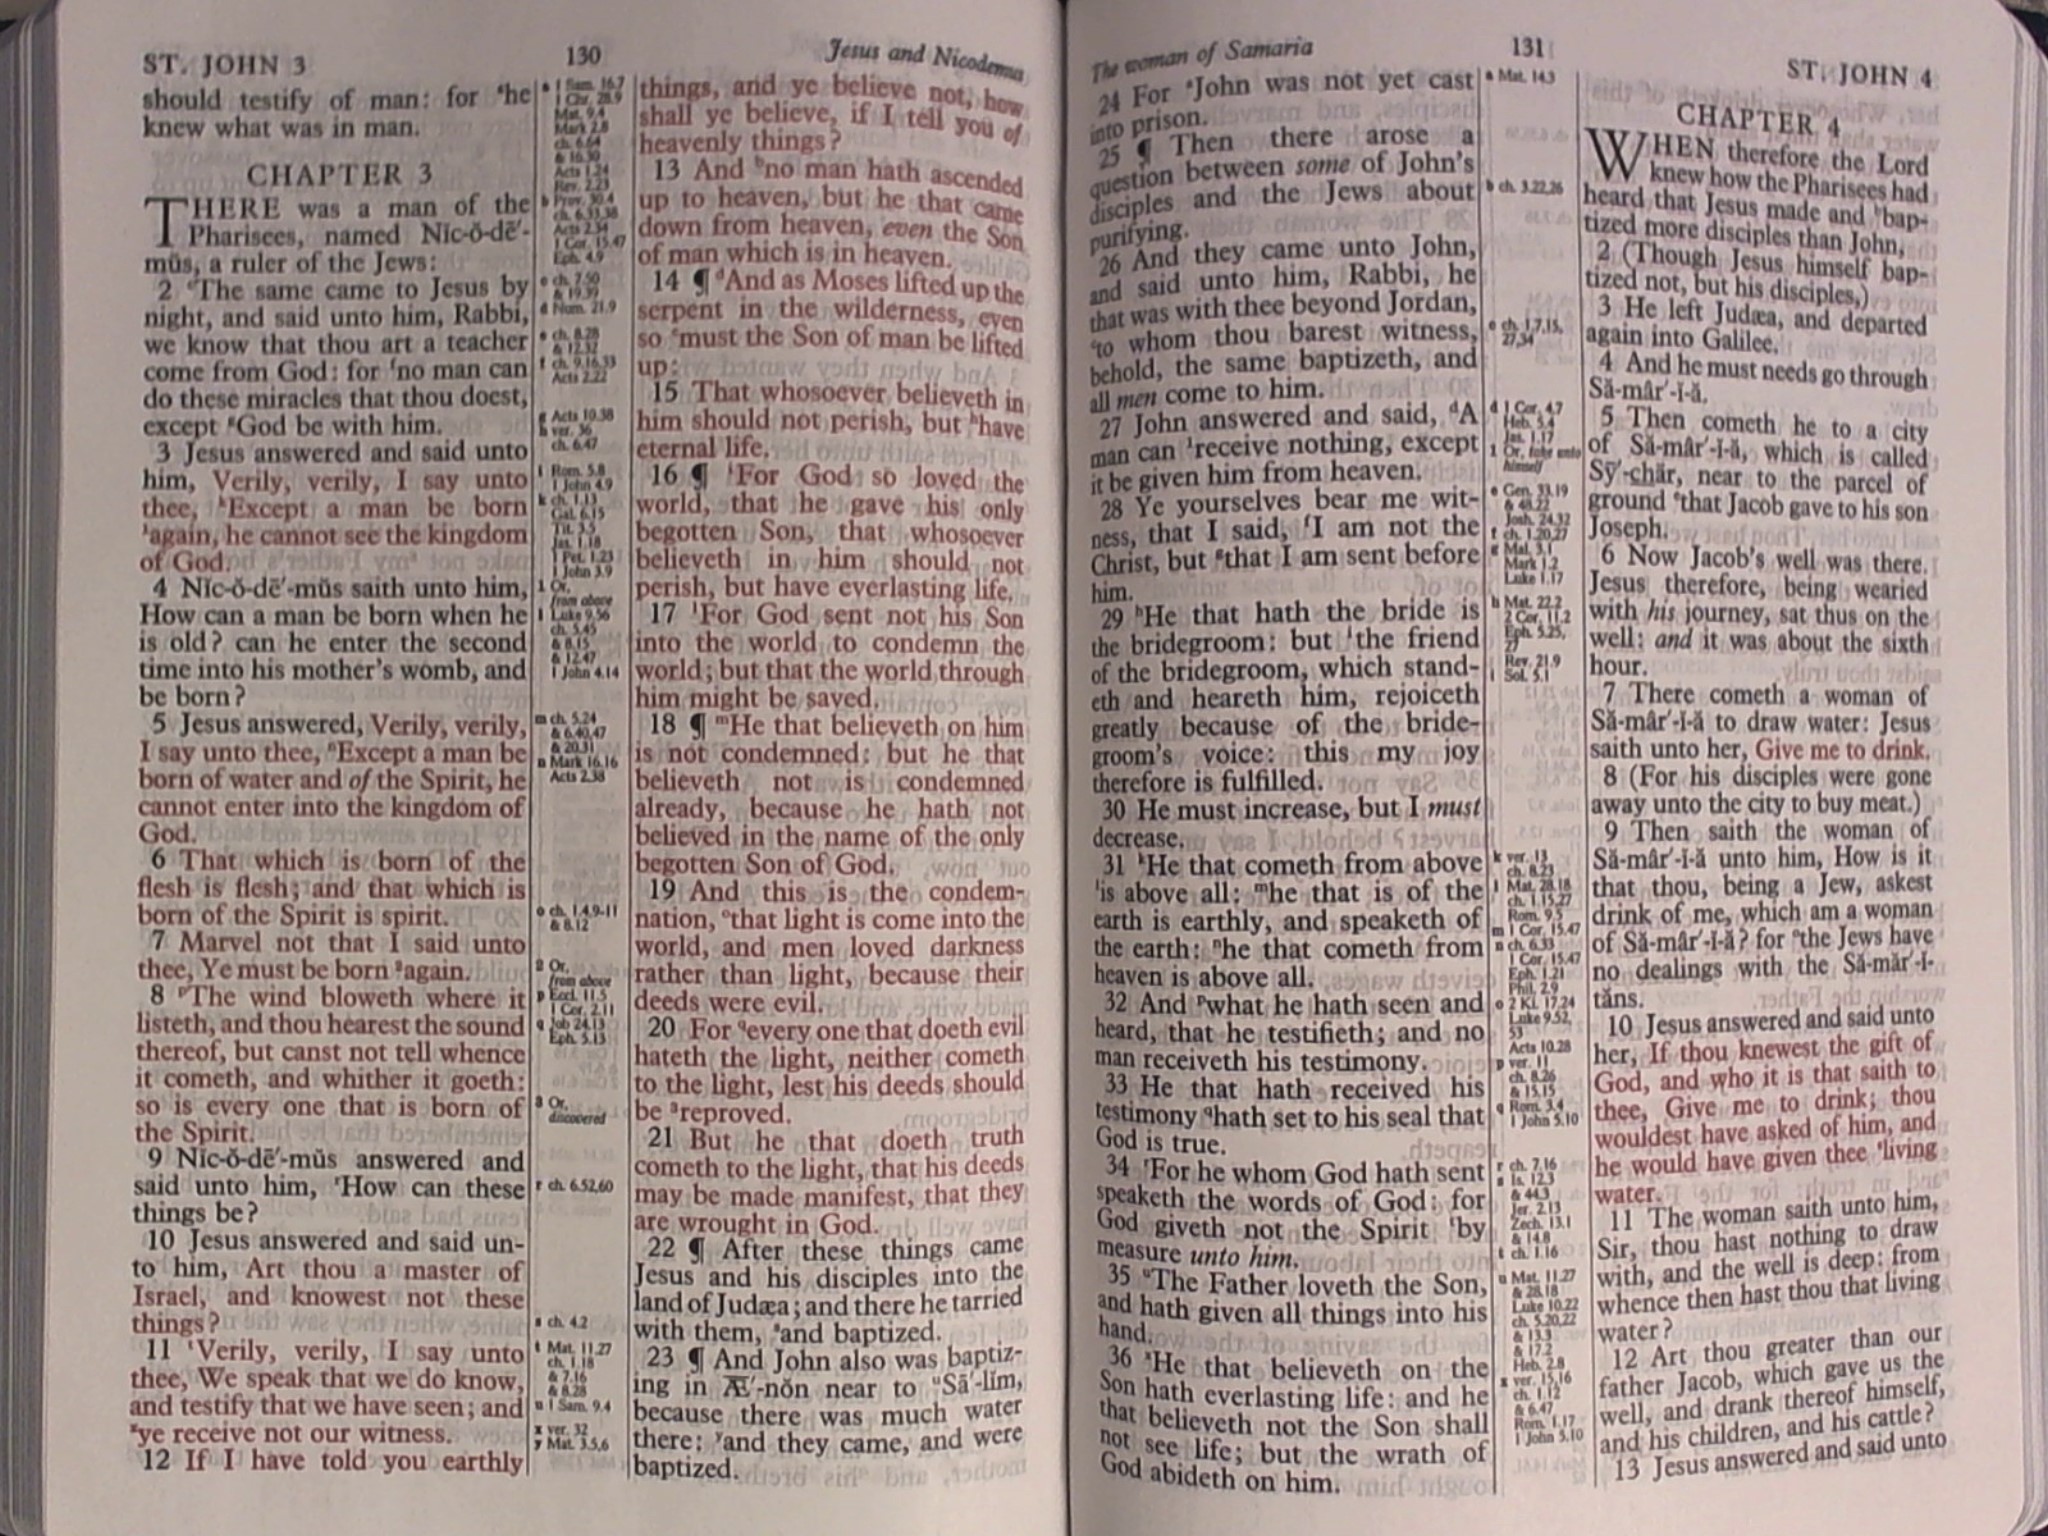 ST. JOHN 3
130
Jesus and Nicodemus
should testify of man: for ᵃhe
knew what was in man.
CHAPTER 3
THERE was a man of the
Pharisees, named Nĭc-ŏ-dē′-
mŭs, a ruler of the Jews:
2 ᶜThe same came to Jesus by
night, and said unto him, Rabbi,
we know that thou art a teacher
come from God: for ᶠno man can
do these miracles that thou doest,
except ᵍGod be with him.
3 Jesus answered and said unto
him, Verily, verily, I say unto
thee, ᵏExcept a man be born
¹again, he cannot see the kingdom
of God.
4 Nĭc-ŏ-dē′-mŭs saith unto him,
How can a man be born when he
is old? can he enter the second
time into his mother's womb, and
be born?
5 Jesus answered, Verily, verily,
I say unto thee, ⁿExcept a man be
born of water and of the Spirit, he
cannot enter into the kingdom of
God.
6 That which is born of the
flesh is flesh; and that which is
born of the Spirit is spirit.
7 Marvel not that I said unto
thee, Ye must be born ²again.
8 ᵖThe wind bloweth where it
listeth, and thou hearest the sound
thereof, but canst not tell whence
it cometh, and whither it goeth:
so is every one that is born of
the Spirit.
9 Nĭc-ŏ-dē′-mŭs answered and
said unto him, ʳHow can these
things be?
10 Jesus answered and said un-
to him, Art thou a master of
Israel, and knowest not these
things?
11 ᵗVerily, verily, I say unto
thee, We speak that we do know,
and testify that we have seen; and
ˣye receive not our witness.
12 If I have told you earthly
a 1 Sam. 16.7
1 Chr. 28.9
Mat. 9.4
Mark 2.8
ch. 6.64
& 16.30
Acts 1.24
Rev. 2.23
b Prov. 30.4
ch. 6.33,38
Acts 2.34
1 Cor. 15.47
Eph. 4.9
c ch. 7.50
& 19.39
d Num. 21.9
e ch. 8.28
& 12.32
f ch. 9.16,33
Acts 2.22
g Acts 10.38
h ver. 36
ch. 6.47
i Rom. 5.8
1 John 4.9
k ch. 1.13
Gal. 6.15
Tit. 3.5
Jas. 1.18
1 Pet. 1.23
1 John 3.9
1 Or,
from above
l Luke 9.56
ch. 5.45
& 8.15
& 12.47
1 John 4.14
m ch. 5.24
& 6.40,47
& 20.31
n Mark 16.16
Acts 2.38
o ch. 1.4,9-11
& 8.12
2 Or,
from above
p Eccl. 11.5
1 Cor. 2.11
q Job 24.13
Eph. 5.13
3 Or,
discovered
r ch. 6.52,60
s ch. 4.2
t Mat. 11.27
ch. 1.18
& 7.16
& 8.28
u 1 Sam. 9.4
x ver. 32
y Mat. 3.5,6
things, and ye believe not, how
shall ye believe, if I tell you of
heavenly things?
13 And ᵇno man hath ascended
up to heaven, but he that came
down from heaven, even the Son
of man which is in heaven.
14 ¶ ᵈAnd as Moses lifted up the
serpent in the wilderness, even
so ᵉmust the Son of man be lifted
up:
15 That whosoever believeth in
him should not perish, but ʰhave
eternal life.
16 ¶ ⁱFor God so loved the
world, that he gave his only
begotten Son, that whosoever
believeth in him should not
perish, but have everlasting life.
17 ˡFor God sent not his Son
into the world to condemn the
world; but that the world through
him might be saved.
18 ¶ ᵐHe that believeth on him
is not condemned: but he that
believeth not is condemned
already, because he hath not
believed in the name of the only
begotten Son of God.
19 And this is the condem-
nation, ᵒthat light is come into the
world, and men loved darkness
rather than light, because their
deeds were evil.
20 For ᑫevery one that doeth evil
hateth the light, neither cometh
to the light, lest his deeds should
be ³reproved.
21 But he that doeth truth
cometh to the light, that his deeds
may be made manifest, that they
are wrought in God.
22 ¶ After these things came
Jesus and his disciples into the
land of Judæa; and there he tarried
with them, ˢand baptized.
23 ¶ And John also was baptiz-
ing in Æ′-nŏn near to ᵘSā′-lĭm,
because there was much water
there: ʸand they came, and were
baptized.
The woman of Samaria
131
ST. JOHN 4
24 For ᵃJohn was not yet cast
into prison.
25 ¶ Then there arose a
question between some of John's
disciples and the Jews about
purifying.
26 And they came unto John,
and said unto him, Rabbi, he
that was with thee beyond Jordan,
ᶜto whom thou barest witness,
behold, the same baptizeth, and
all men come to him.
27 John answered and said, ᵈA
man can ¹receive nothing, except
it be given him from heaven.
28 Ye yourselves bear me wit-
ness, that I said, ᶠI am not the
Christ, but ᵍthat I am sent before
him.
29 ʰHe that hath the bride is
the bridegroom: but ⁱthe friend
of the bridegroom, which stand-
eth and heareth him, rejoiceth
greatly because of the bride-
groom's voice: this my joy
therefore is fulfilled.
30 He must increase, but I must
decrease.
31 ᵏHe that cometh from above
ˡis above all: ᵐhe that is of the
earth is earthly, and speaketh of
the earth: ⁿhe that cometh from
heaven is above all.
32 And ᵖwhat he hath seen and
heard, that he testifieth; and no
man receiveth his testimony.
33 He that hath received his
testimony ᑫhath set to his seal that
God is true.
34 ʳFor he whom God hath sent
speaketh the words of God: for
God giveth not the Spirit ᵗby
measure unto him.
35 ᵘThe Father loveth the Son,
and hath given all things into his
hand.
36 ˣHe that believeth on the
Son hath everlasting life: and he
that believeth not the Son shall
not see life; but the wrath of
God abideth on him.
a Mat. 14.3
b ch. 3.22,26
c ch. 1.7,15,
27,34
d 1 Cor. 4.7
Heb. 5.4
Jas. 1.17
1 Or, take unto
himself
e Gen. 33.19
& 48.22
Josh. 24.32
f ch. 1.20,27
g Mal. 3.1
Mark 1.2
Luke 1.17
h Mat. 22.2
2 Cor. 11.2
Eph. 5.25,
27
Rev. 21.9
i Sol. 5.1
k ver. 13
ch. 8.23
l Mat. 28.18
ch. 1.15,27
Rom. 9.5
m 1 Cor. 15.47
n ch. 6.33
1 Cor. 15.47
Eph. 1.21
Phil. 2.9
o 2 Ki. 17.24
Luke 9.52,
53
Acts 10.28
p ver. 11
ch. 8.26
& 15.15
q Rom. 3.4
1 John 5.10
r ch. 7.16
s Is. 12.3
& 44.3
Jer. 2.13
Zech. 13.1
& 14.8
t ch. 1.16
u Mat. 11.27
& 28.18
Luke 10.22
ch. 5.20,22
& 13.3
& 17.2
Heb. 2.8
x ver. 15,16
ch. 1.12
& 6.47
Rom. 1.17
1 John 5.10
CHAPTER 4
WHEN therefore the Lord
knew how the Pharisees had
heard that Jesus made and ᵇbap-
tized more disciples than John,
2 (Though Jesus himself bap-
tized not, but his disciples,)
3 He left Judæa, and departed
again into Galilee.
4 And he must needs go through
Să-mâr′-ĭ-ă.
5 Then cometh he to a city
of Să-mâr′-ĭ-ă, which is called
Sȳ′-chär, near to the parcel of
ground ᵉthat Jacob gave to his son
Joseph.
6 Now Jacob's well was there.
Jesus therefore, being wearied
with his journey, sat thus on the
well: and it was about the sixth
hour.
7 There cometh a woman of
Să-mâr′-ĭ-ă to draw water: Jesus
saith unto her, Give me to drink.
8 (For his disciples were gone
away unto the city to buy meat.)
9 Then saith the woman of
Să-mâr′-ĭ-ă unto him, How is it
that thou, being a Jew, askest
drink of me, which am a woman
of Să-mâr′-ĭ-ă? for ᵒthe Jews have
no dealings with the Să-măr′-ĭ-
tăns.
10 Jesus answered and said unto
her, If thou knewest the gift of
God, and who it is that saith to
thee, Give me to drink; thou
wouldest have asked of him, and
he would have given thee ˢliving
water.
11 The woman saith unto him,
Sir, thou hast nothing to draw
with, and the well is deep: from
whence then hast thou that living
water?
12 Art thou greater than our
father Jacob, which gave us the
well, and drank thereof himself,
and his children, and his cattle?
13 Jesus answered and said unto